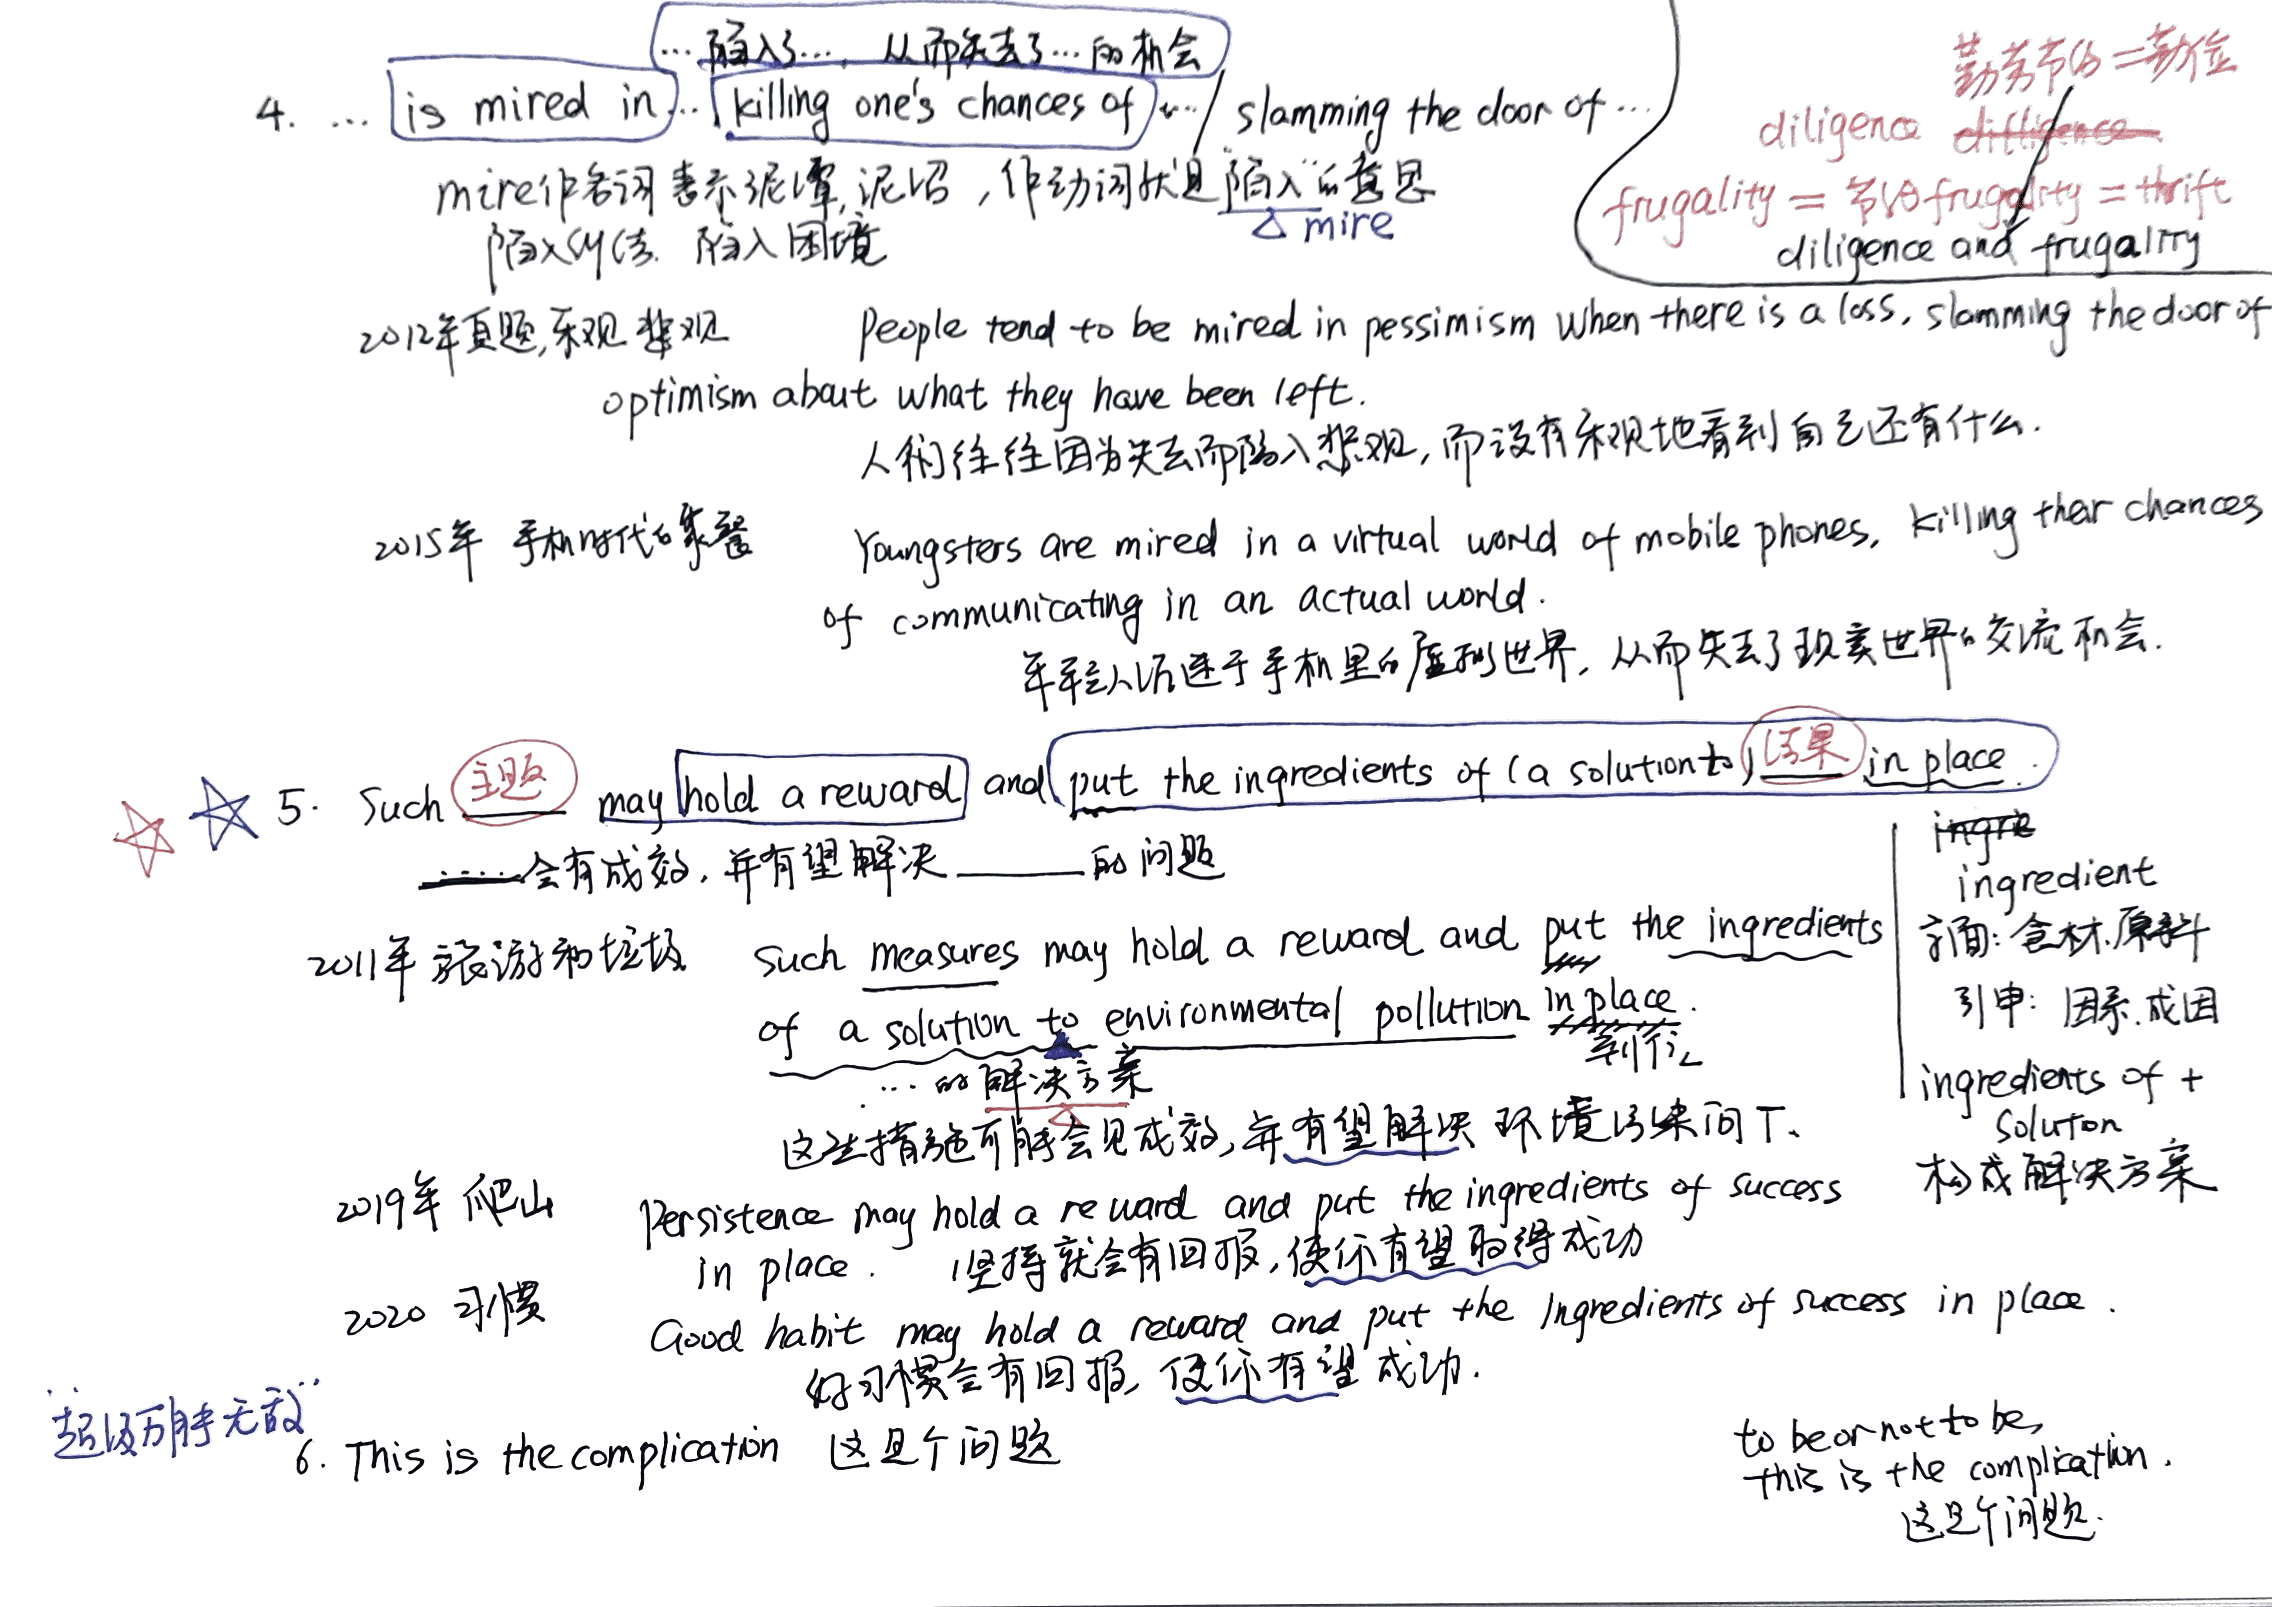 …陷入了…, 从而失去了…的机会
4. … is mired in … killing one's chances of … / slamming the door of …
mire作名词表示泥潭,泥沼,作动词就是"陷入"的意思
△ mire
陷入 陷入困境
勤劳节俭=勤俭
diligence diffligence
frugality = 节俭 frugality = thrift
diligence and frugality
2012年真题,乐观 悲观 People tend to be mired in pessimism when there is a loss, slamming the door of
optimism about what they have been left.
人们往往因为失去而陷入悲观,而没有乐观地看到自己还有什么.
2015年 手机时代的聚餐 Youngsters are mired in a virtual world of mobile phones, killing their chances
of communicating in an actual world.
年轻人沉迷于手机里的虚拟世界,从而失去了现实世界的交流机会.
5. Such 主题 may hold a reward and put the ingredients of (a solution to) 结果 in place.
……会有成效,并有望解决____的问题
ingre
ingredient
字面:食材.原料
引申: 因素.成因
ingredients of +
soluton
构成解决方案
2011年 旅游和垃圾 Such measures may hold a reward and put the ingredients
of a solution to environmental pollution in place.
到位
…的解决方案
这些措施可能会见成效,并有望解决环境污染问T.
2019年 爬山 Persistence may hold a reward and put the ingredients of success
in place. 坚持就会有回报,使你有望取得成功
2020 习惯 Good habit may hold a reward and put the ingredients of success in place.
好习惯会有回报,使你有望成功.
"超级万能无敌"
6. This is the complication 这是个问题
to be or not to be,
this is the complication.
这是个问题.